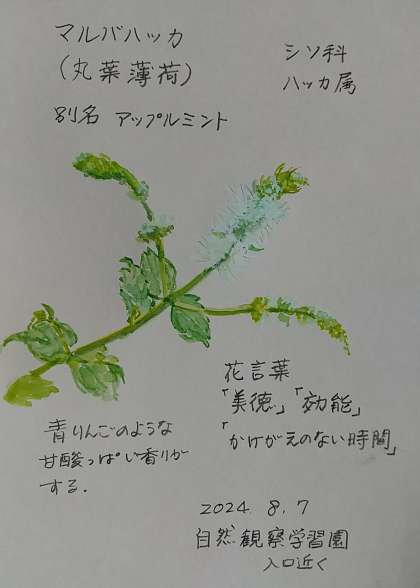 マルバハッカ
(丸葉薄荷)
シソ科
ハッカ属
別名 アップルミント
花言葉
「美徳」「効能」
「かけがえのない時間」
青りんごのような
甘酸っぱい香りが
する.
2024. 8. 7
自然観察学習園
入口近く